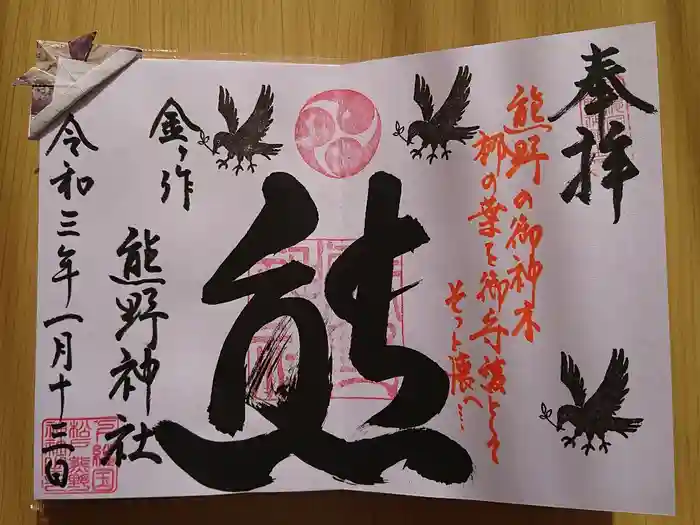 奉拝
熊野の御神木
梛の葉を御守護として
そっと懐へ…
熊
金ヶ作
熊野神社
令和三年一月十三日